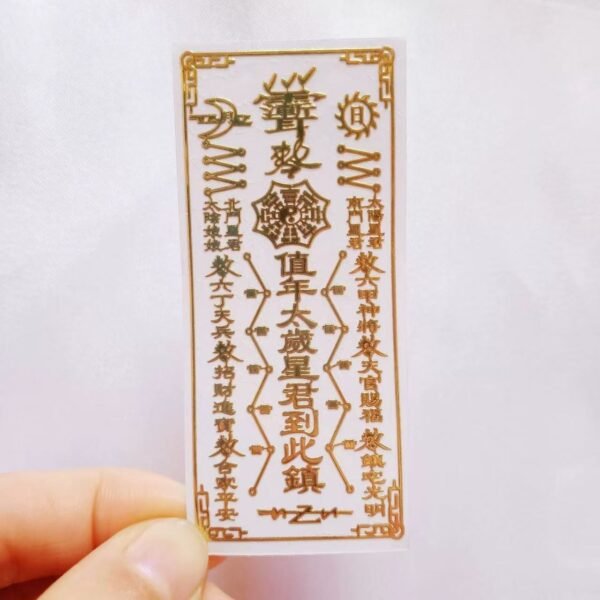 日
太陽星君
南鬥星君
敕六甲神將敕天官賜福敕鎮宅光明
敕
值年太歲星君到此鎮
月
北鬥星君
太陰娘娘
敕六丁天兵敕招財進寶敕合家平安